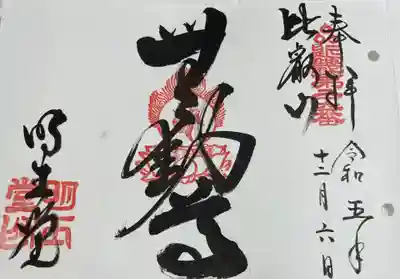 奉拝
比叡山
令和五年
十二月六日
無動尊
明王堂